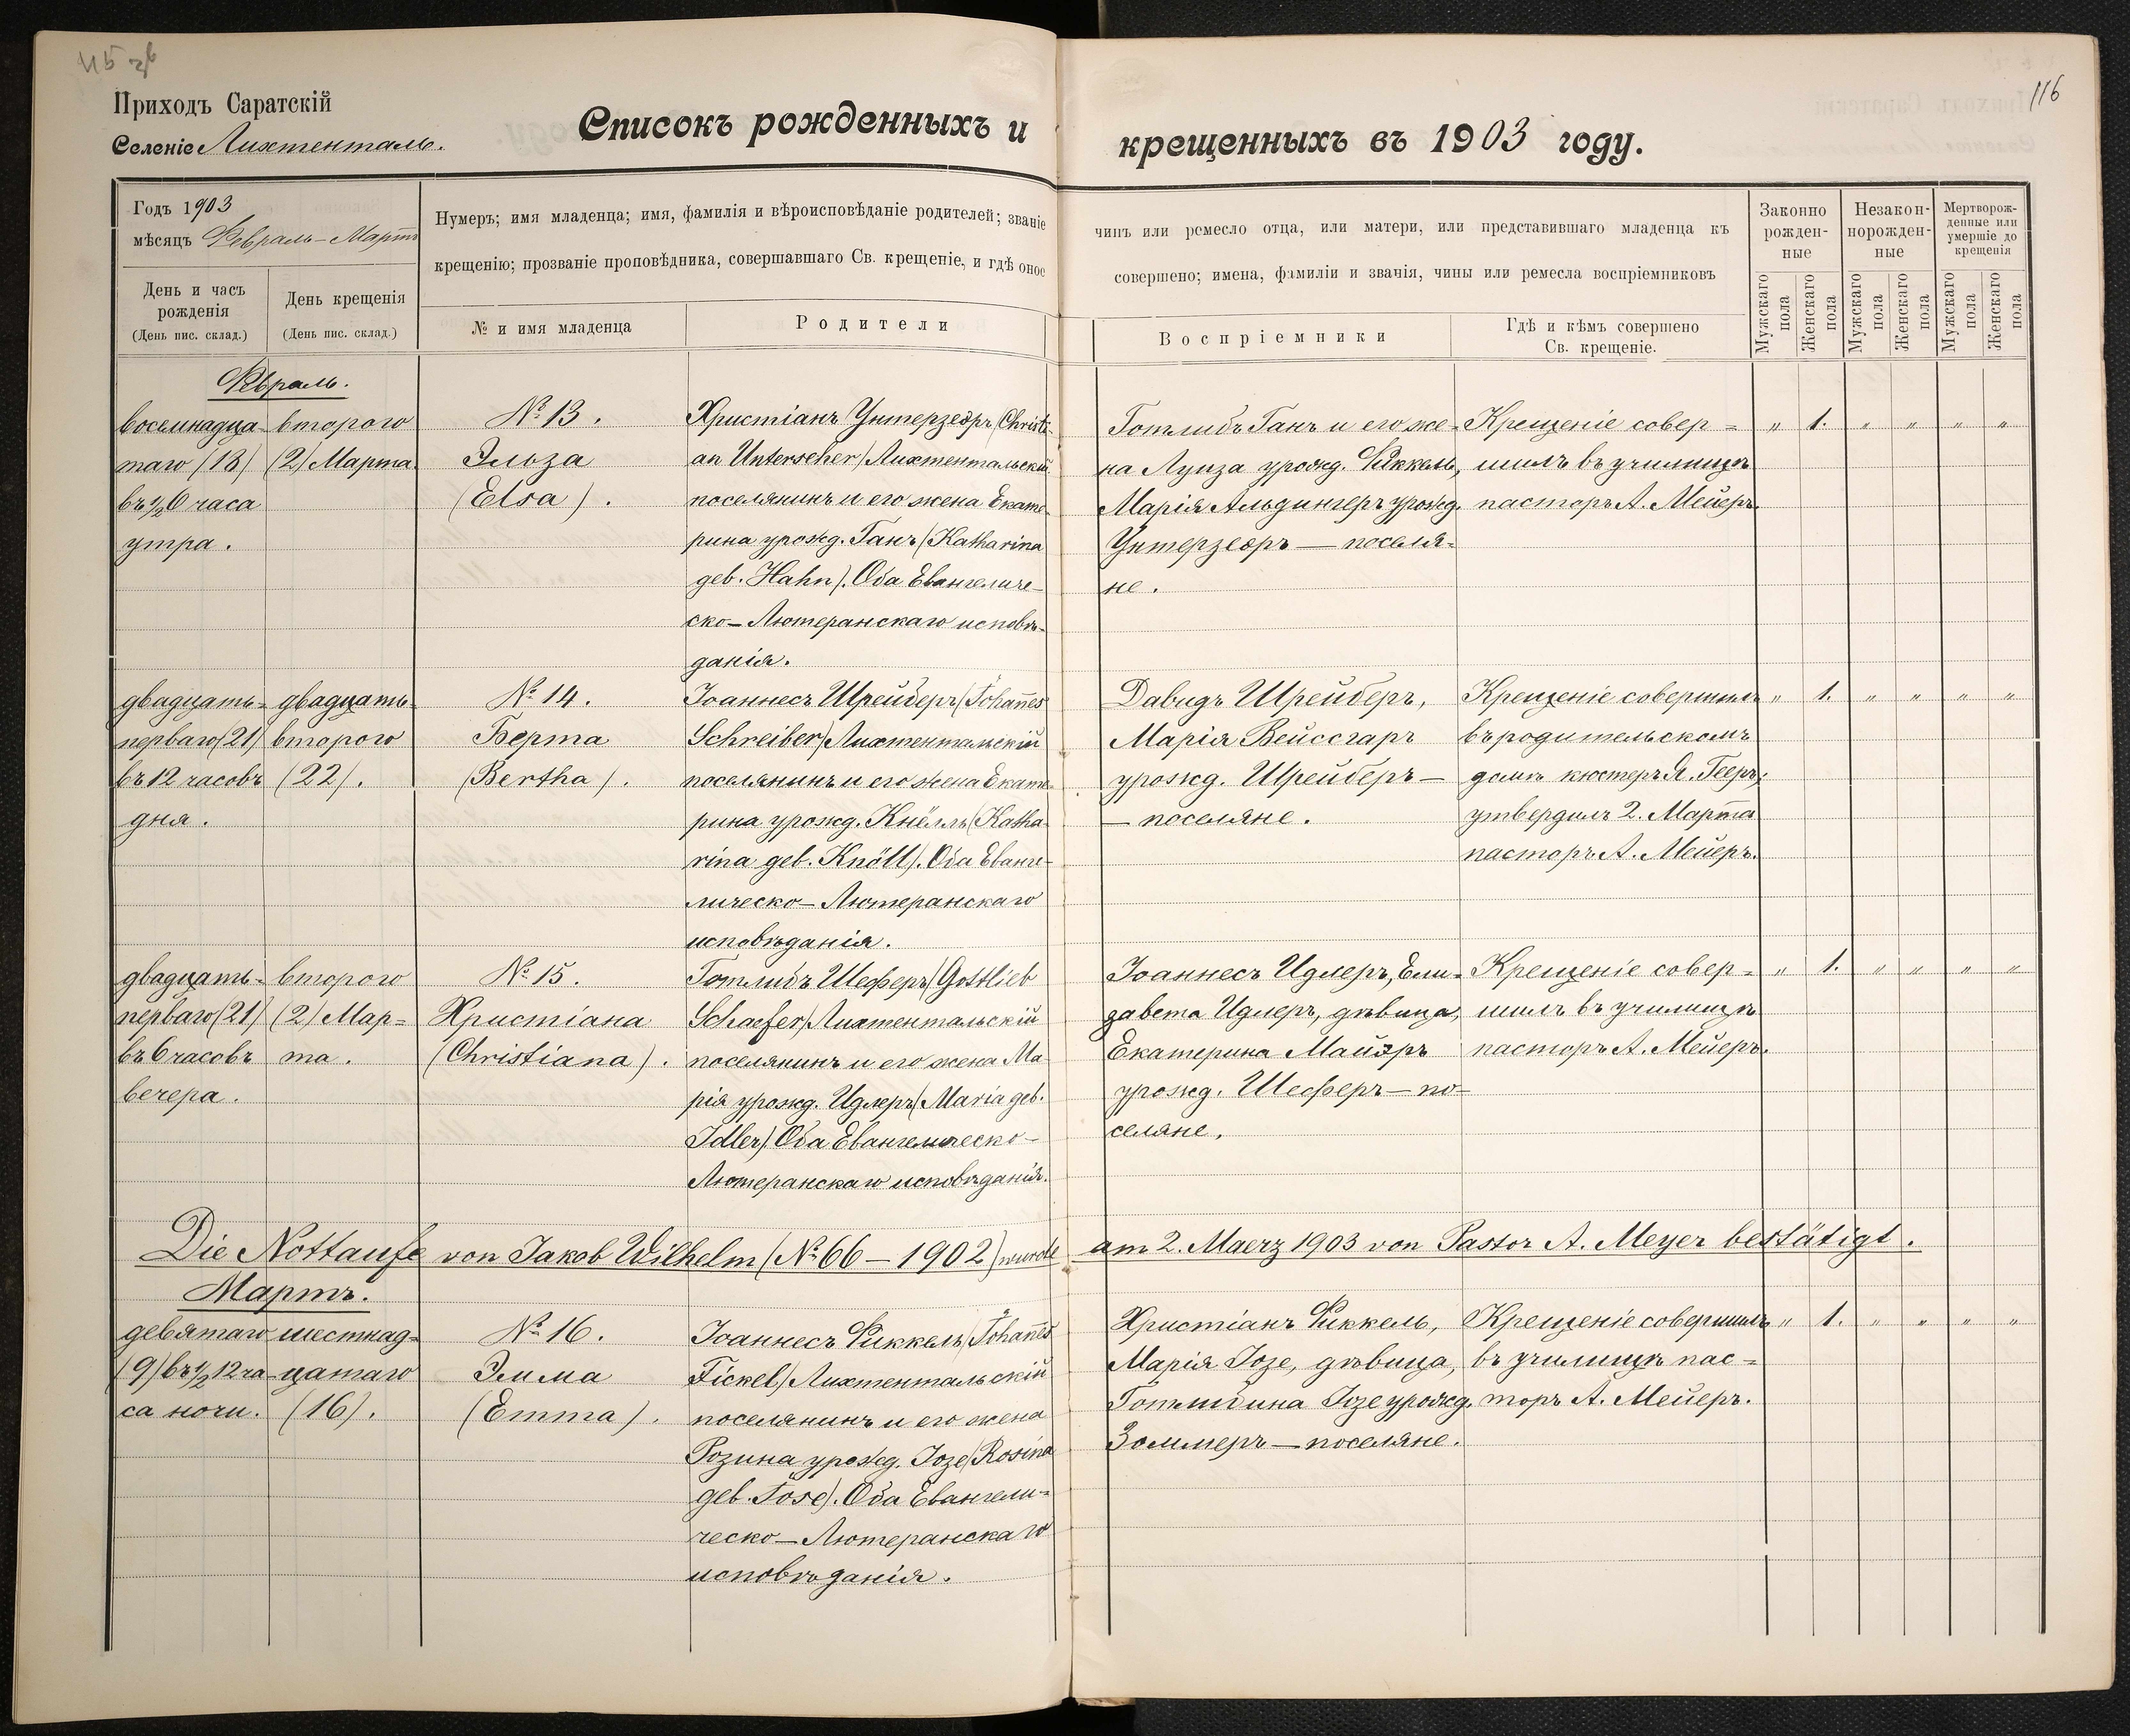 115 зв
116
Приходъ Саратскій
Селеніе Лихтенталь.
Списокъ рожденныхъ и
крещенныхъ въ 1903 году.
Годъ 1903
мѣсяцъ Февраль-Мартъ
День и часъ
рожденія
(День пис. склад.)
День крещенія
(День пис. склад.)
Нумеръ; имя младенца; имя, фамилія и вѣроисповѣданіе родителей; званіе
крещенію; прозваніе проповѣдника, совершавшаго Св. крещеніе, и гдѣ оное
№ и имя младенца
Родители
чинъ или ремесло отца, или матери, или представившаго младенца къ
совершено; имена, фамиліи и званія, чины или ремесла воспріемниковъ
Воспріемники
Гдѣ и кѣмъ совершено
Св. крещеніе.
Законно
рожден-
ные
Незакон-
норожден-
ные
Мертворож-
денные или
умершіе до
крещенія
Мужскаго
пола
Женскаго
пола
Мужскаго
пола
Женскаго
пола
Мужскаго
пола
Женскаго
пола
Февраль.
восемнадца-
таго (18)
въ ½6 часа
утра.
второго
(2) Марта.
№ 13.
Эльза
(Elsa).
Христіанъ Унтерзееръ (Christi-
an Unterseher) Лихтентальскій
поселянинъ и его жена Екате-
рина урожд. Ганъ (Katharina
geb. Hahn). Оба Евангеличе-
ско-Лютеранскаго исповѣ-
данія.
Готлибъ Ганъ и его же-
на Луиза урожд. Фиккель,
Марія Альдингеръ урожд.
Унтерзееръ — поселя-
не.
Крещеніе совер-
шилъ въ училищѣ
пасторъ А. Мейеръ.
„ 1. „ „ „ „
двадцать-
перваго (21)
въ 12 часовъ
дня.
двадцать-
второго
(22).
№ 14.
Берта
(Bertha).
Іоаннесъ Шрейберъ (Johannes
Schreiber) Лихтентальскій
поселянинъ и его жена Екате-
рина урожд. Кнёлль (Katha-
rina geb. Knöll). Оба Еванге-
лическо-Лютеранскаго
исповѣданія.
Давидъ Шрейберъ,
Марія Вейссгаръ
урожд. Шрейберъ —
— поселяне.
Крещеніе совершилъ
въ родительскомъ
домѣ кюстеръ Я. Гееръ;
утвердилъ 2. Марта
пасторъ А. Мейеръ.
„ 1. „ „ „ „
двадцать-
перваго (21)
въ 6 часовъ
вечера.
второго
(2) Мар-
та.
№ 15.
Христіана
(Christiana).
Готлибъ Шеферъ (Gottlieb
Schaefer) Лихтентальскій
поселянинъ и его жена Ма-
рія урожд. Идлеръ (Maria geb.
Idler). Оба Евангелическо-
Лютеранскаго исповѣданія.
Іоаннесъ Идлеръ, Ели-
завета Идлеръ, дѣвица,
Екатерина Майэръ
урожд. Шеферъ — по-
селяне.
Крещеніе совер-
шилъ въ училищѣ
пасторъ А. Мейеръ.
„ 1. „ „ „ „
Die Nottaufe von Jakob Wilhelm (№ 66 — 1902) wurde am 2. Maerz 1903 von Pastor A. Meyer bestätigt.
Мартъ.
девятаго
(9) въ ½12 ча-
са ночи.
шестнад-
цатаго
(16).
№ 16.
Эмма
(Emma).
Іоаннесъ Фиккель (Johannes
Fickel) Лихтентальскій
поселянинъ и его жена
Розина урожд. Іозе (Rosina
geb. Jose). Оба Евангели-
ческо-Лютеранскаго
исповѣданія.
Христіанъ Фиккель,
Марія Іозе, дѣвица,
Готлибина Іозе урожд.
Зоммеръ — поселяне.
Крещеніе совершилъ
въ училищѣ пас-
торъ А. Мейеръ.
„ 1. „ „ „ „